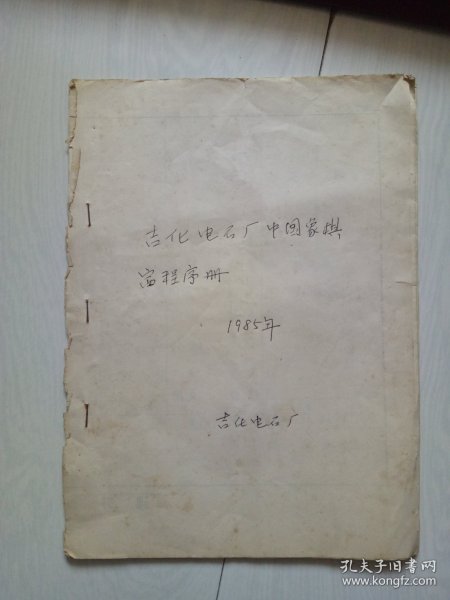 吉化电石厂中国象棋
赛程序册
1985年
吉化电石厂
孔夫子旧书网
www.kongfz.com